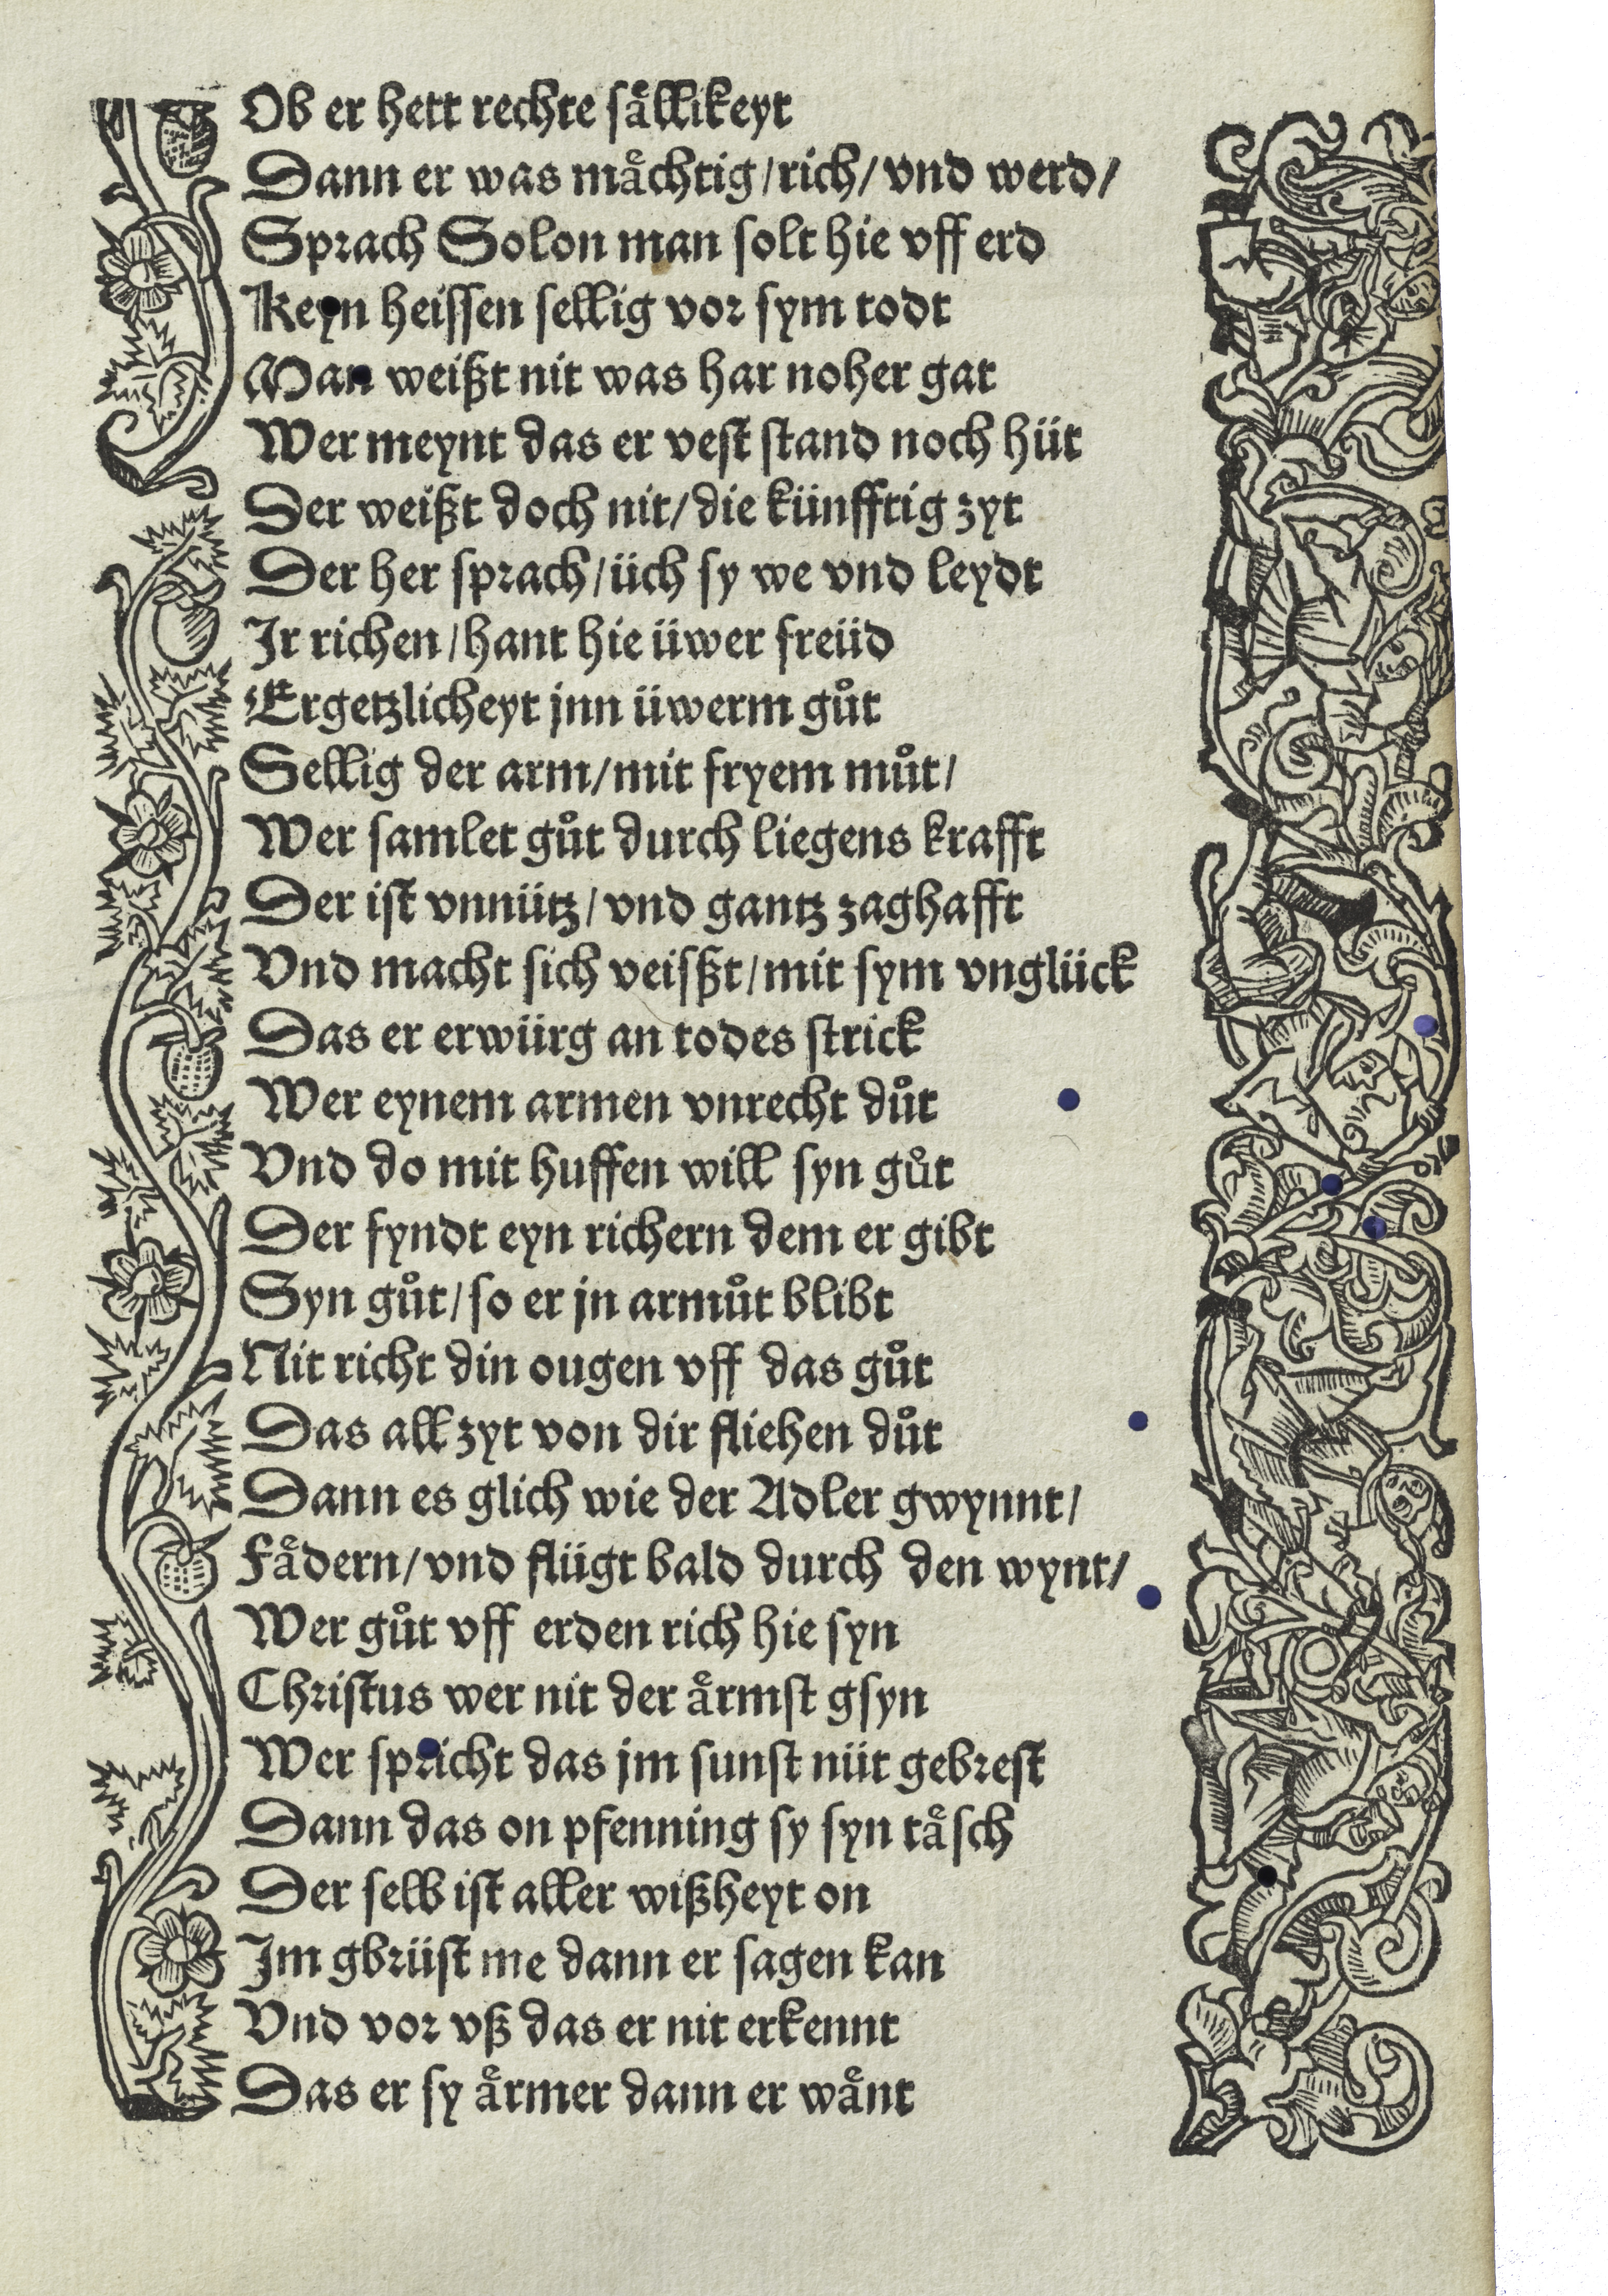 Ob er hett rechte saͤllikeyt
Dann er was maͤchtig/rich/vnd werd/
Sprach Solon man solt hie vff erd
Keyn heissen sellig vor sym todt
Man weißt nit was har noher gat
Wer meynt das er vest stand noch hüt
Der weißt doch nit/die künfftig zyt
Der her sprach/üch sy we vnd leydt
Ir richen/hant hie üwer freüd
Ergetzlicheyt jnn üwerm guͦt
Sellig der arm/mit fryem muͦt/
Wer samlet guͦt durch liegens krafft
Der ist vnnütz/vnd gantz zaghafft
Vnd macht sich veisßt/mit sym vnglück
Das er erwürg an todes strick
Wer eynem armen vnrecht duͦt
Vnd do mit huffen will syn guͦt
Der fyndt eyn richern dem er gibt
Syn guͦt/so er jn armuͦt blibt
Nit richt din ougen vff das guͦt
Das all zyt von dir fliehen duͦt
Dann es glich wie der Adler gwynnt/
Faͤdern/vnd flügt bald durch den wynt/
Wer guͦt vff erden rich hie syn
Christus wer nit der aͤrmst gsyn
Wer spricht das jm sunst nüt gebrest
Dann das on pfenning sy syn taͤsch
Der selb ist aller wißheyt on
Im gbrüst me dann er sagen kan
Vnd vor vß das er nit erkennt
Das er sy aͤrmer dann er waͤnt